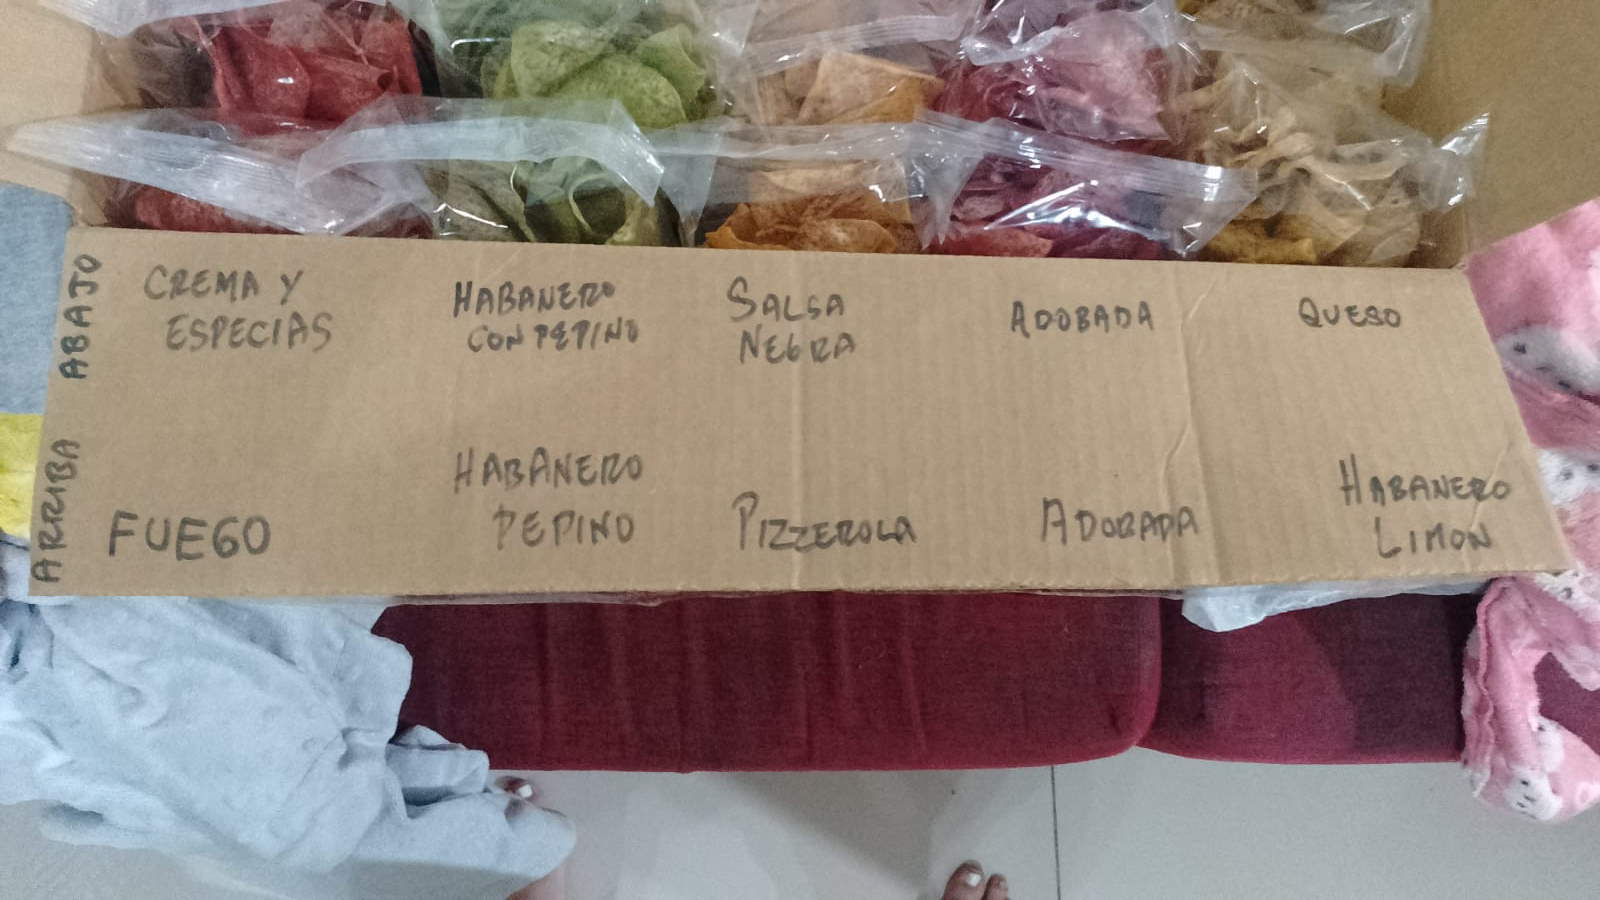 ABAJO
CREMA Y
ESPECIAS
HABANERO
CON PEPINO
SALSA
NEGRA
ADOBADA
QUESO
ARRIBA
FUEGO
HABANERO
PEPINO
PIZZEROLA
ADOBADA
HABANERO
LIMON